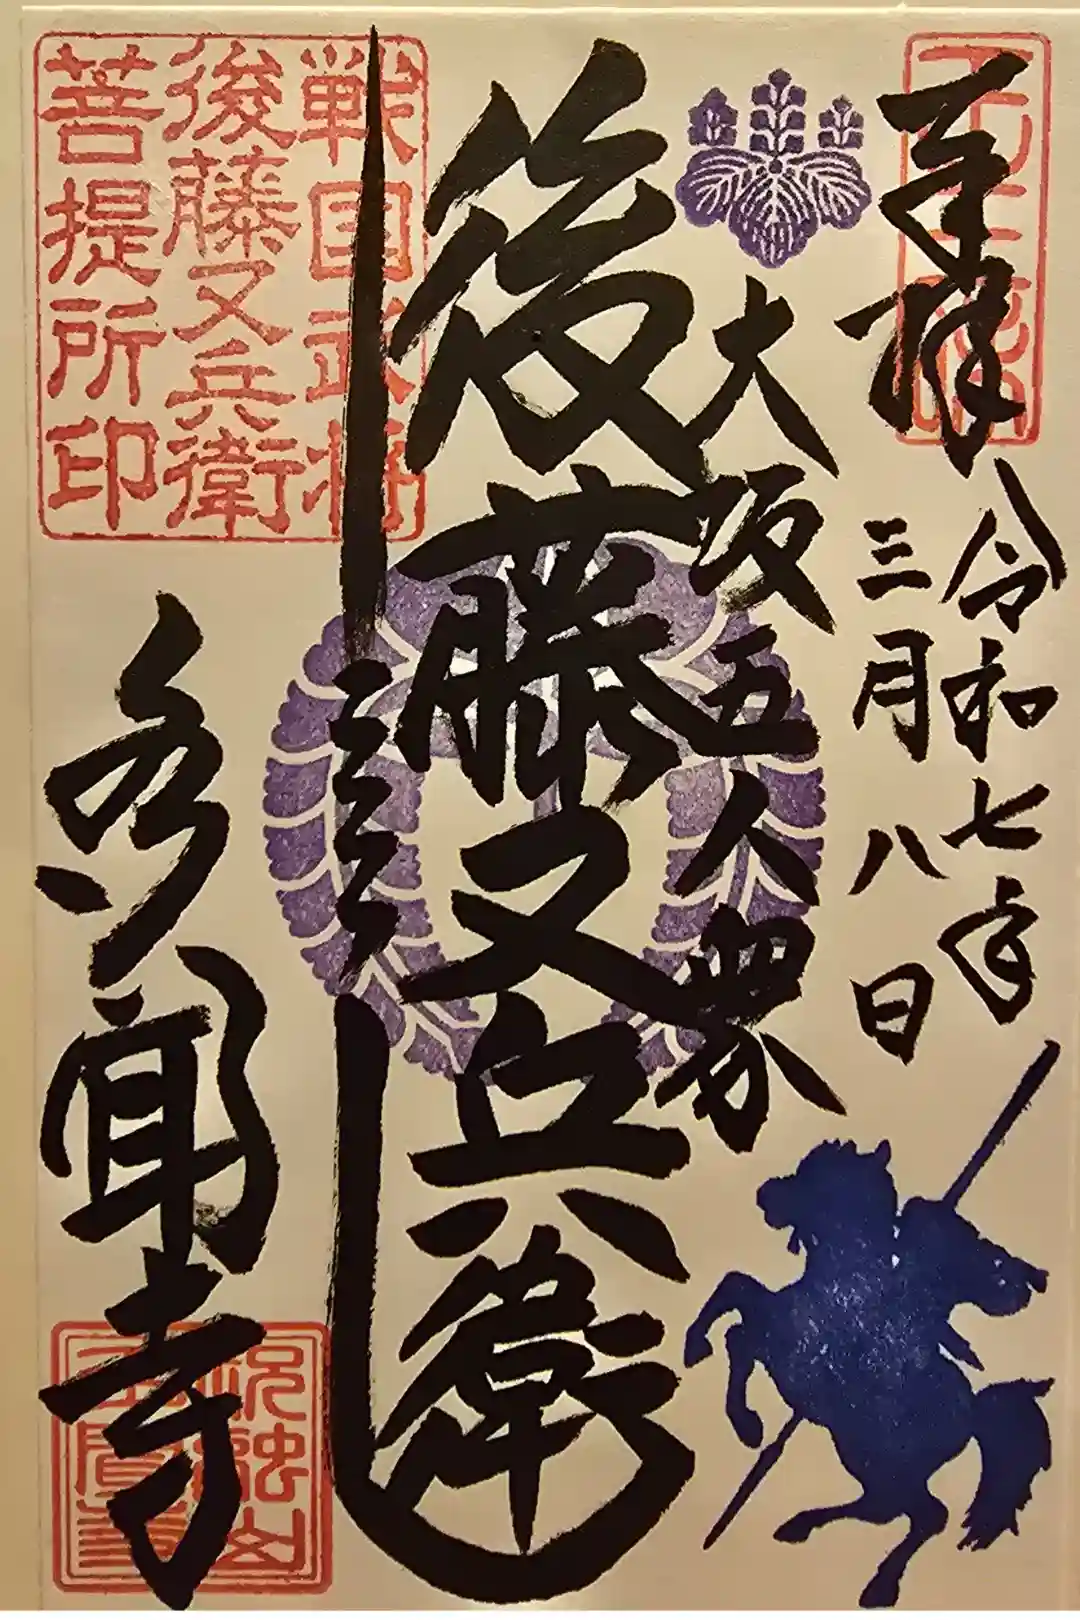 奉拝
令和七年
三月八日
大坂五人衆
後藤又兵衛
戦国武将
後藤又兵衛
菩提所印
多聞寺
祝融山